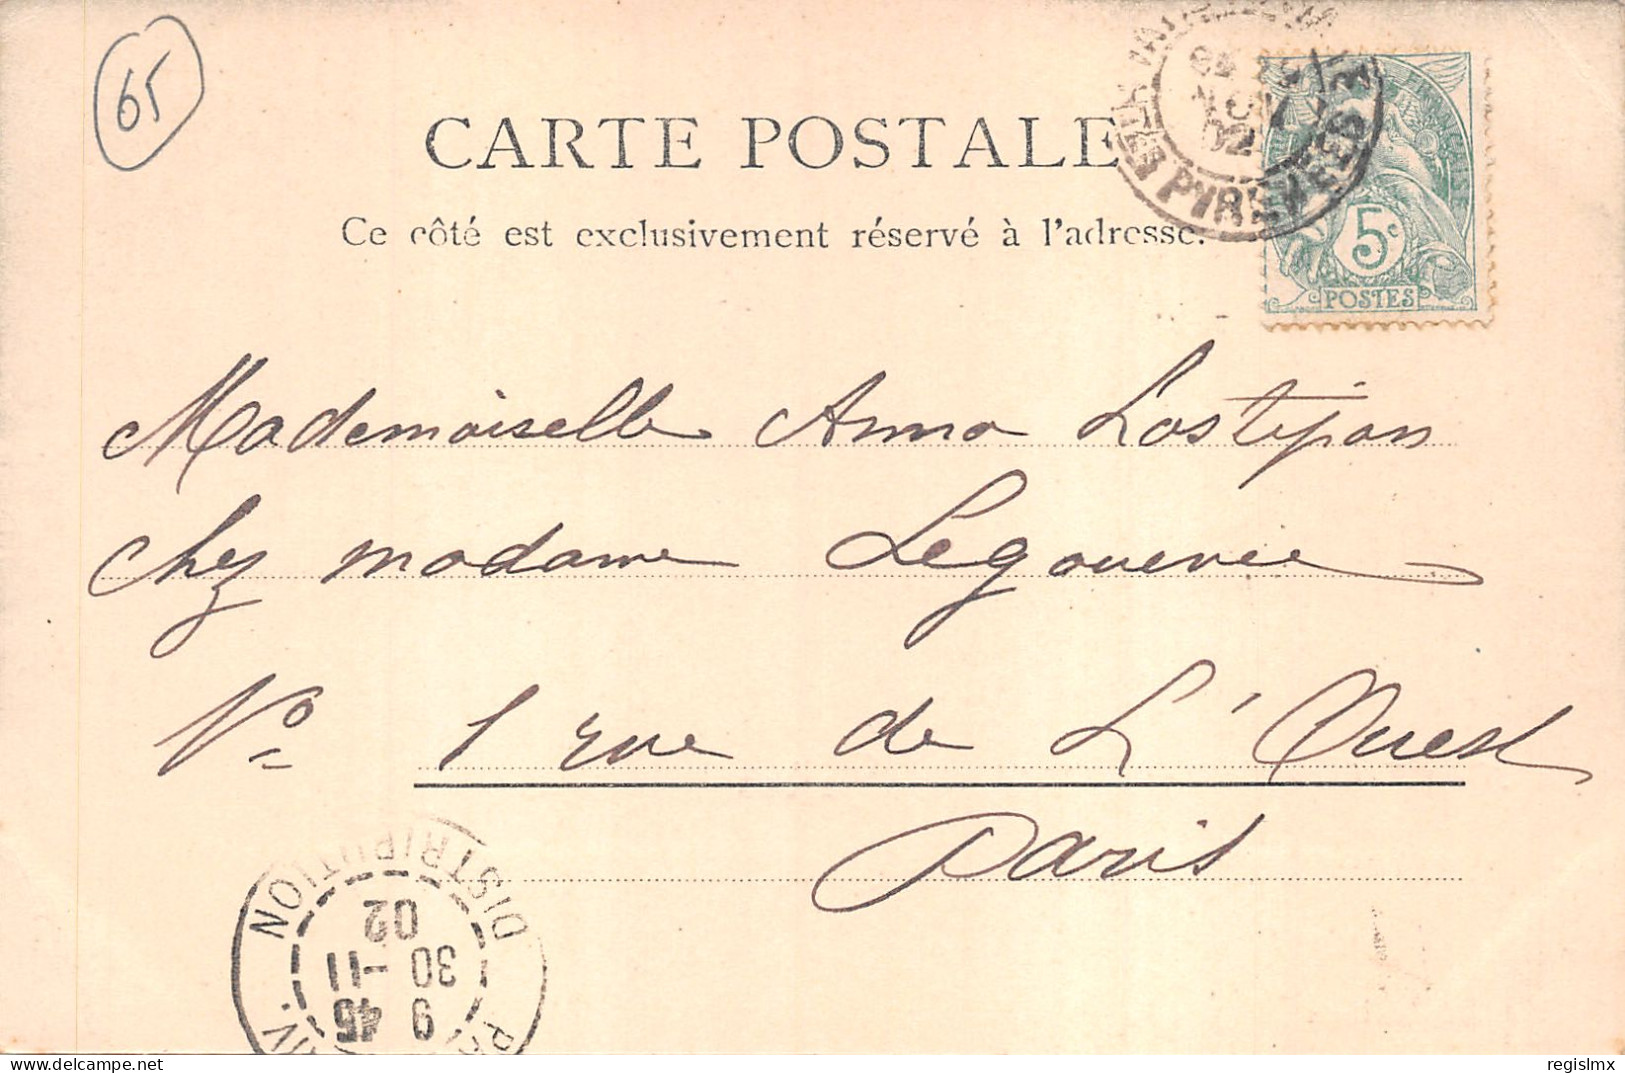 65
CARTE POSTALE
Ce côté est exclusivement réservé à l'adresse.
PYRENEES
NOV
02
FRANÇAISE
5c
POSTES
Mademoiselle Anna Lostijean
Chez madame Legouenee
No 1 rue de L'Ouest
Paris
DISTRIBUTION
9 45
30 -11
02
delcampe.net
regislmx